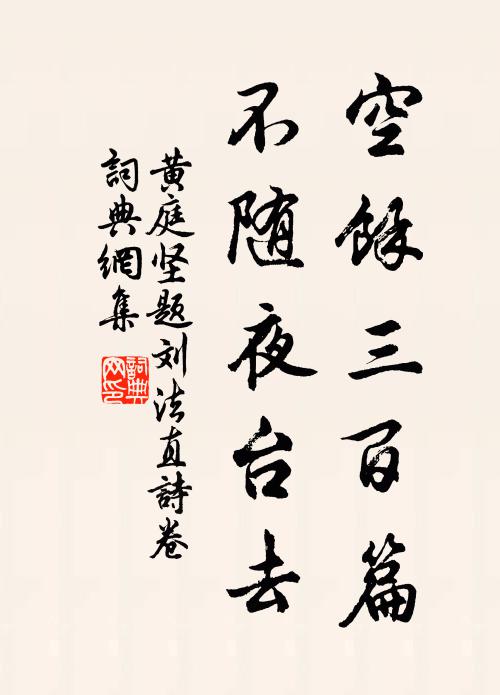 空餘三百篇
不随夜台去
黄庭坚题刘法直詩卷
詞典網集
詞典网印